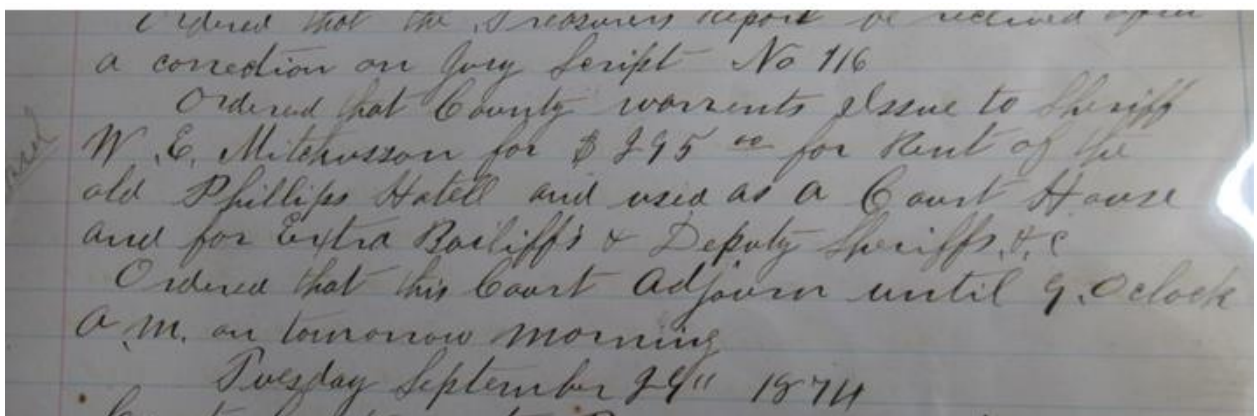 Ordered that the Treasurers Report be received upon
a correction on Jury Script No 116
Ordered that County warrents Issue to Sheriff
W. E. Mitchusson for $295 00 for Rent of the
old Phillips Hotell and used as a Court House
and for Extra Bailiff's & Deputy Sheriffs, & c
Ordered that this Court Adjourn until 9. Oclock
A. M. on tomorrow morning
Tuesday September 29" 1874